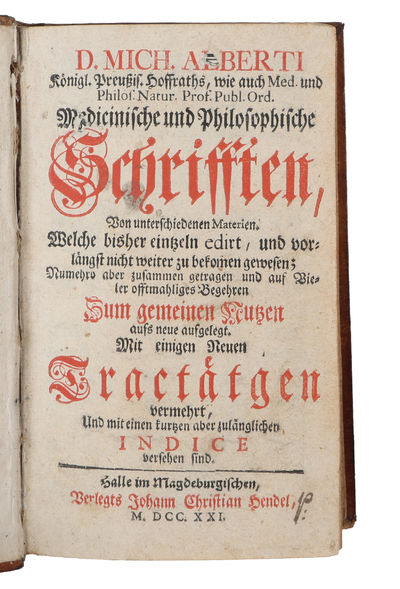 D. MICH. ALBERTI
Königl. Preußis. Hoffraths, wie auch Med. und
Philos. Natur. Prof. Publ. Ord.
Medicinische und Philosophische
Schrifften,
Von unterschiedenen Materien,
Welche bisher eintzeln edirt, und vor-
längst nicht weiter zu bekomen gewesen;
Numehro aber zusammen getragen und auf Vie-
ler offtmahliges Begehren
Zum gemeinen Nutzen
aufs neue aufgelegt.
Mit einigen Neuen
Tractätgen
vermehrt,
Und mit einen kurtzen aber zulänglichen
INDICE
versehen sind.
Halle im Magdeburgischen,
Verlegts Johann Christian Hendel,
M. DCC. XXI.